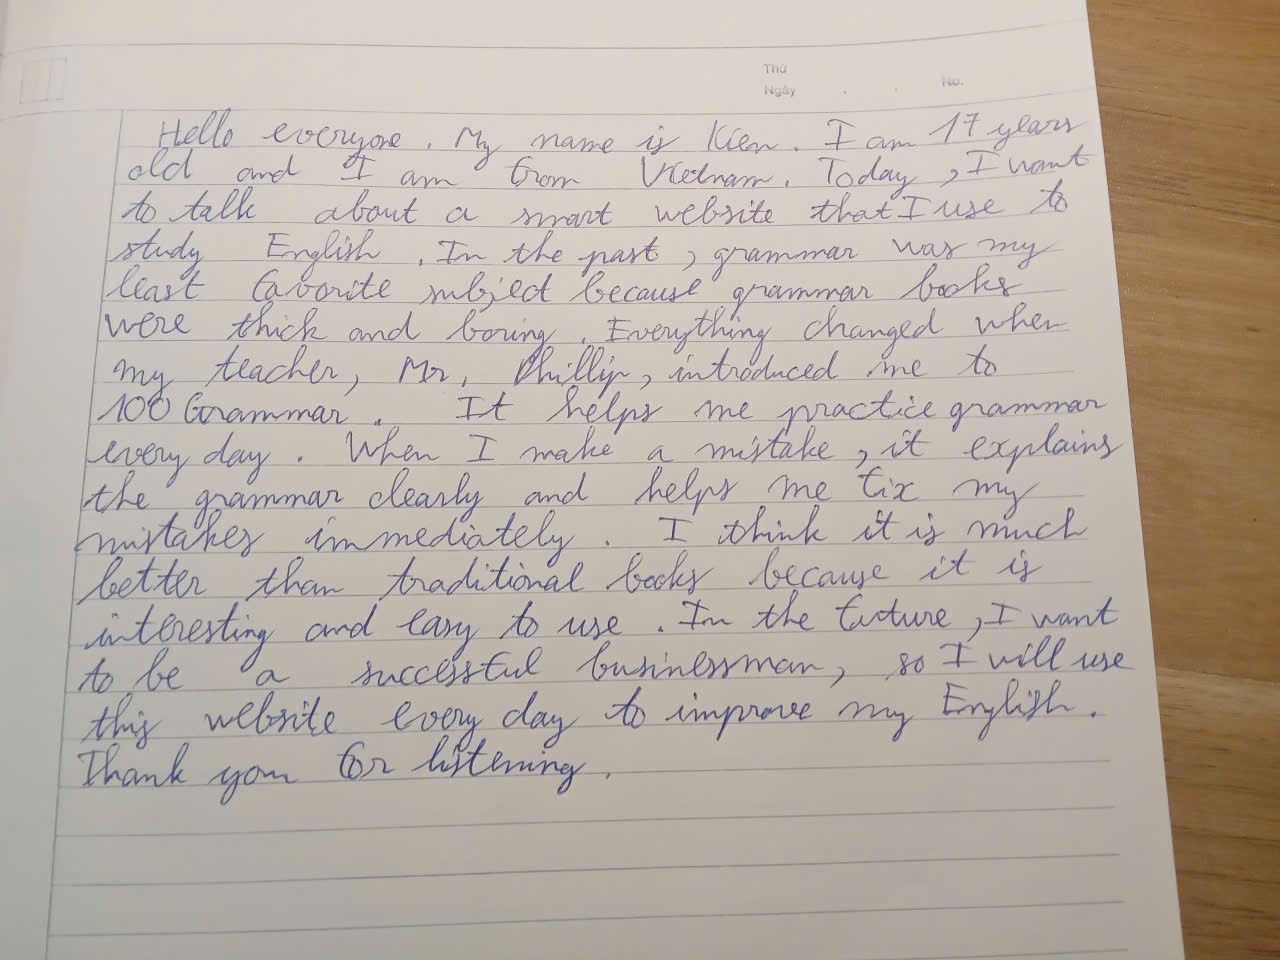 Thứ
Ngày . . No.
Hello everyone. My name is Kien. I am 17 years
old and I am from Vietnam. Today, I want
to talk about a smart website that I use to
study English. In the past, grammar was my
least favorite subject because grammar books
were thick and boring. Everything changed when
my teacher, Mr. Phillip, introduced me to
100 Grammar. It helps me practice grammar
every day. When I make a mistake, it explains
the grammar clearly and helps me fix my
mistakes immediately. I think it is much
better than traditional books because it is
interesting and easy to use. In the future, I want
to be a successful businessman, so I will use
this website every day to improve my English.
Thank you for listening.